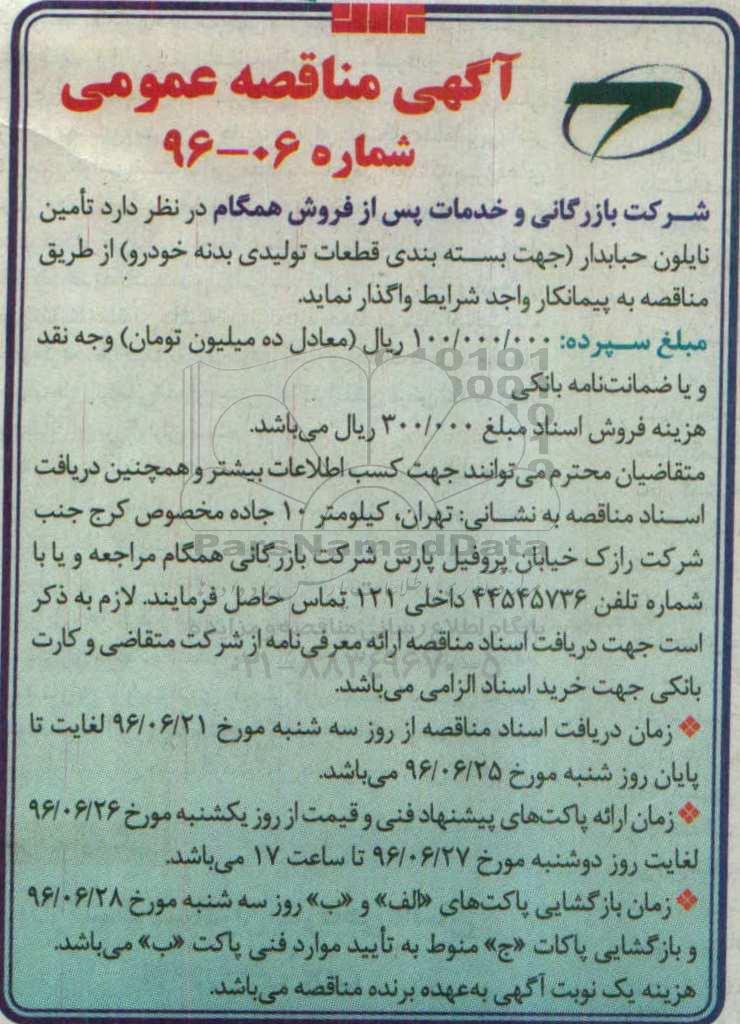 آگهی مناقصه عمومی
شماره ۰۶-۹۶
شرکت بازرگانی و خدمات پس از فروش همگام در نظر دارد تأمین
نایلون حبابدار (جهت بسته بندی قطعات تولیدی بدنه خودرو) از طریق
مناقصه به پیمانکار واجد شرایط واگذار نماید.
مبلغ سپرده: ۱۰۰/۰۰۰/۰۰۰ ریال (معادل ده میلیون تومان) وجه نقد
و یا ضمانت‌نامه بانکی
هزینه فروش اسناد مبلغ ۳۰۰/۰۰۰ ریال می‌باشد.
متقاضیان محترم می‌توانند جهت کسب اطلاعات بیشتر و همچنین دریافت
اسناد مناقصه به نشانی: تهران، کیلومتر ۱۰ جاده مخصوص کرج جنب
ParsNamadData
شرکت رازک خیابان پروفیل پارس شرکت بازرگانی همگام مراجعه و یا با
شماره تلفن ۴۴۵۴۵۷۳۶ داخلی ۱۲۱ تماس حاصل فرمایند. لازم به ذکر
پایگاه اطلاع رسانی مناقصه و مزایده
است جهت دریافت اسناد مناقصه ارائه معرفی‌نامه از شرکت متقاضی و کارت
۰۲۱-۸۸۳۴۹۶۷۰-۵
بانکی جهت خرید اسناد الزامی می‌باشد.
زمان دریافت اسناد مناقصه از روز سه شنبه مورخ ۹۶/۰۶/۲۱ لغایت تا
پایان روز شنبه مورخ ۹۶/۰۶/۲۵ می‌باشد.
زمان ارائه پاکت‌های پیشنهاد فنی و قیمت از روز یکشنبه مورخ ۹۶/۰۶/۲۶
لغایت روز دوشنبه مورخ ۹۶/۰۶/۲۷ تا ساعت ۱۷ می‌باشد.
زمان بازگشایی پاکت‌های «الف» و «ب» روز سه شنبه مورخ ۹۶/۰۶/۲۸
و بازگشایی پاکات «ج» منوط به تأیید موارد فنی پاکت «ب» می‌باشد.
هزینه یک نوبت آگهی به‌عهده برنده مناقصه می‌باشد.